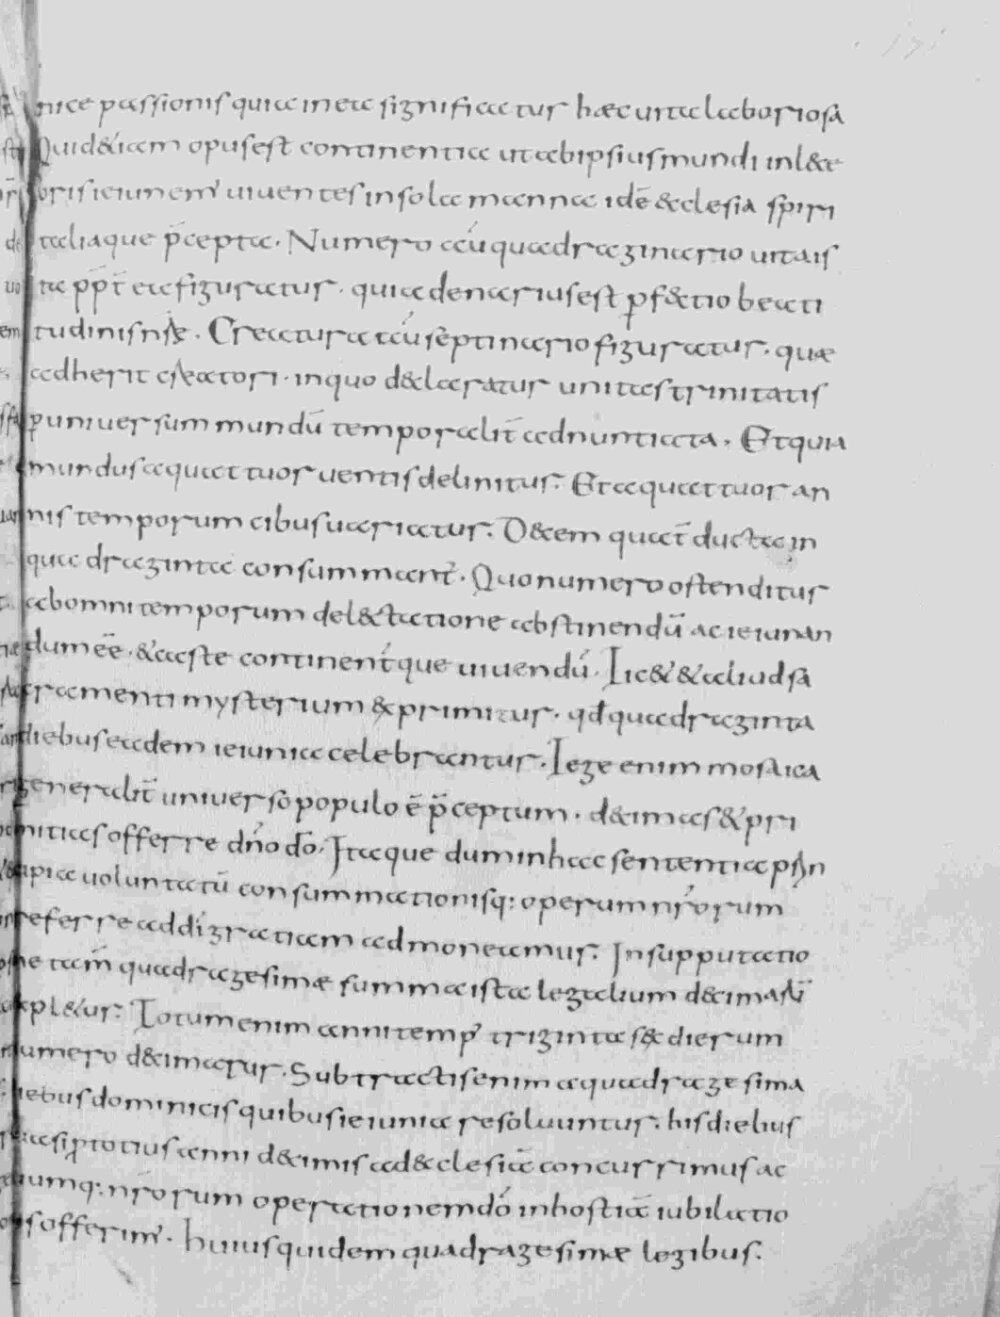 nice passionis quia in ea significatur hæc uita laboriosa
Quid &iam opus est continentia ut ab ipsius mundi inl&e
oris ieiunem' uiuentes in sola manna idē &clesia spiri
taliaque p̄cepta. Numero aū quadraginario uita is
ta pp̄t ea figuratur. quia denarius est perf&io beati
tudinis nr̄æ. Creatura aū septinario figuratur. quæ
adherit creatori. in quo d&laratur unitas trinitatis
per uniuersum mundū temporalit̄ adnuntiata. Et quia
mundus a quattuor uentis delinitur. Et a quattuor an
nis temporum cibus uariatur. D&em quat̄ ducta in
quadraginta consummant'. Quo numero ostenditur
ab omni temporum del&tatione abstinendū ac ieiunan
dum ēē. & caste continent'que uiuendū. Lic& & aliud sa
cramenti mysterium &primitur. qđ quadraginta
diebus eadem ieiunia celebrantur. Lege enim mosaica
generalit̄ uniuerso populo ē p̄ceptum. d&imas & pri
mitias offerre dn̄o dō. Itaque dum in hac sententia
pia uoluntatū consummationisq: operum nr̄orum
referre ad dī gratiam admoneamus. In supputatio
ne tam̄ quadragesimæ summa ista legalium d&imarū
expl&ur. Totum enim anni temp' triginta s& dierum
numero d&imatur. Subtractis enim a quadragesima
diebus dominicis quibus ieiunia resoluuntur. his diebus
quasi pro totius anni d&imis ad &clesiā concurrimus ac
tuumq: nr̄orum operationem dō in hostiā iubilatio
nis offerim'. huius quidem quadragesimæ legibus.